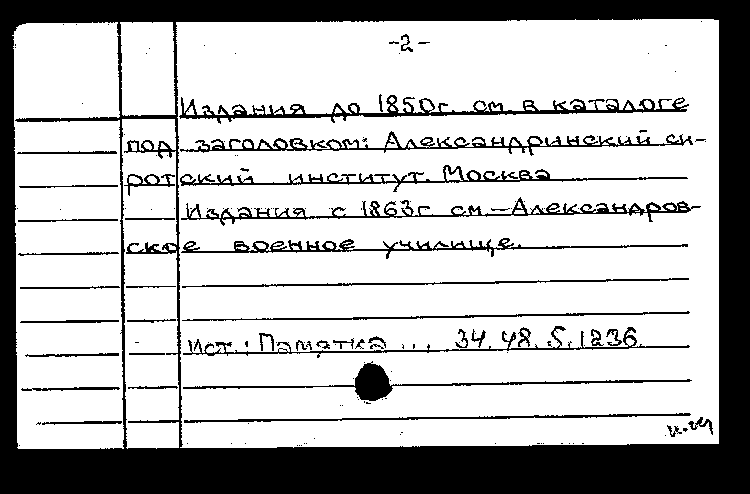 -2-
Издания до 1850г. см. в каталоге
под заголовком: Александринский си-
ротский институт. Москва
Издания с 1863г см.-Александров-
ское военное училище.
Ист.: Памятка ... 34.48.5.1236.